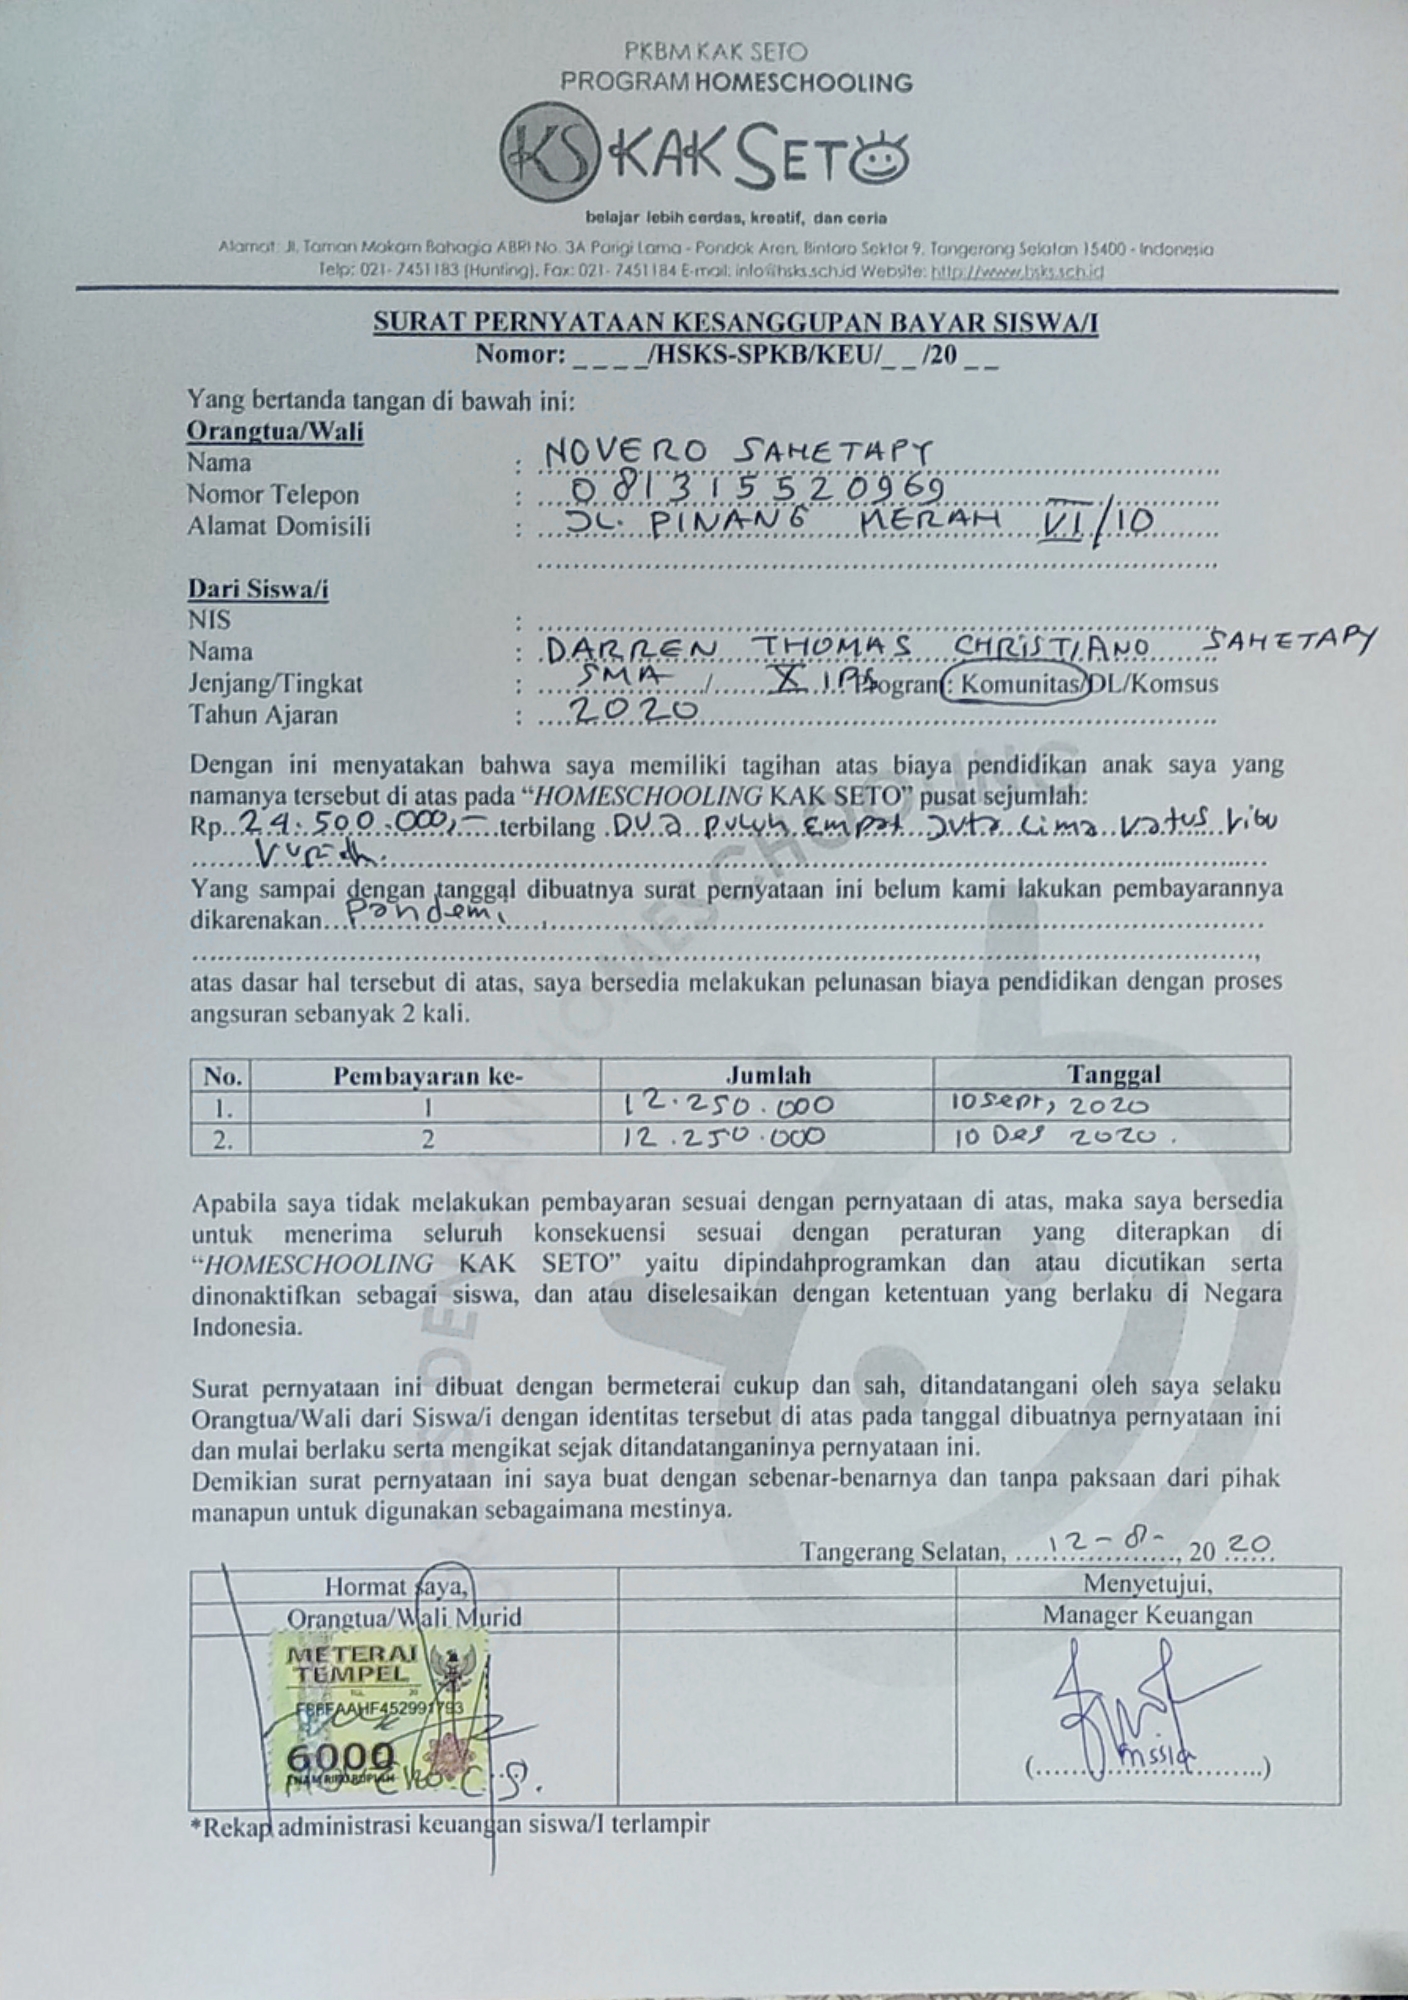 PKBM KAK SETO
PROGRAM HOMESCHOOLING
KS KAK SETO
belajar lebih cerdas, kreatif, dan ceria
Alamat: Jl. Taman Makam Bahagia ABRI No. 3A Parigi Lama - Pondok Aren, Bintaro Sektor 9, Tangerang Selatan 15400 - Indonesia
Telp: 021- 7451183 (Hunting), Fax: 021- 7451184 E-mail: info@hsks.sch.id Website: http://www.hsks.sch.id
SURAT PERNYATAAN KESANGGUPAN BAYAR SISWA/I
Nomor: _ _ _ _/HSKS-SPKB/KEU/_ _ /20 _ _
Yang bertanda tangan di bawah ini:
Orangtua/Wali
Nama : NOVERO SAHETAPY
Nomor Telepon : 081315520969
Alamat Domisili : JL. PINANG MERAH VI/10
Dari Siswa/i
NIS :
Nama : DARREN THOMAS CHRISTIANO SAHETAPY
Jenjang/Tingkat : SMA / X IPS Program: Komunitas/DL/Komsus
Tahun Ajaran : 2020
Dengan ini menyatakan bahwa saya memiliki tagihan atas biaya pendidikan anak saya yang
namanya tersebut di atas pada “HOMESCHOOLING KAK SETO” pusat sejumlah:
Rp. 24.500.000,- terbilang Dua puluh Empat Juta Lima ratus ribu
rupiah.
Yang sampai dengan tanggal dibuatnya surat pernyataan ini belum kami lakukan pembayarannya
dikarenakan Pandemi
atas dasar hal tersebut di atas, saya bersedia melakukan pelunasan biaya pendidikan dengan proses
angsuran sebanyak 2 kali.
No. Pembayaran ke- Jumlah Tanggal
1. 1 12.250.000 10 Sept, 2020
2. 2 12.250.000 10 Des 2020.
Apabila saya tidak melakukan pembayaran sesuai dengan pernyataan di atas, maka saya bersedia
untuk menerima seluruh konsekuensi sesuai dengan peraturan yang diterapkan di
“HOMESCHOOLING KAK SETO” yaitu dipindahprogramkan dan atau dicutikan serta
dinonaktifkan sebagai siswa, dan atau diselesaikan dengan ketentuan yang berlaku di Negara
Indonesia.
Surat pernyataan ini dibuat dengan bermeterai cukup dan sah, ditandatangani oleh saya selaku
Orangtua/Wali dari Siswa/i dengan identitas tersebut di atas pada tanggal dibuatnya pernyataan ini
dan mulai berlaku serta mengikat sejak ditandatanganinya pernyataan ini.
Demikian surat pernyataan ini saya buat dengan sebenar-benarnya dan tanpa paksaan dari pihak
manapun untuk digunakan sebagaimana mestinya.
Tangerang Selatan, 12-8-, 2020
Hormat saya, Menyetujui,
Orangtua/Wali Murid Manager Keuangan
METERAI
TEMPEL
6000
ENAM RIBU RUPIAH
*Rekap administrasi keuangan siswa/I terlampir